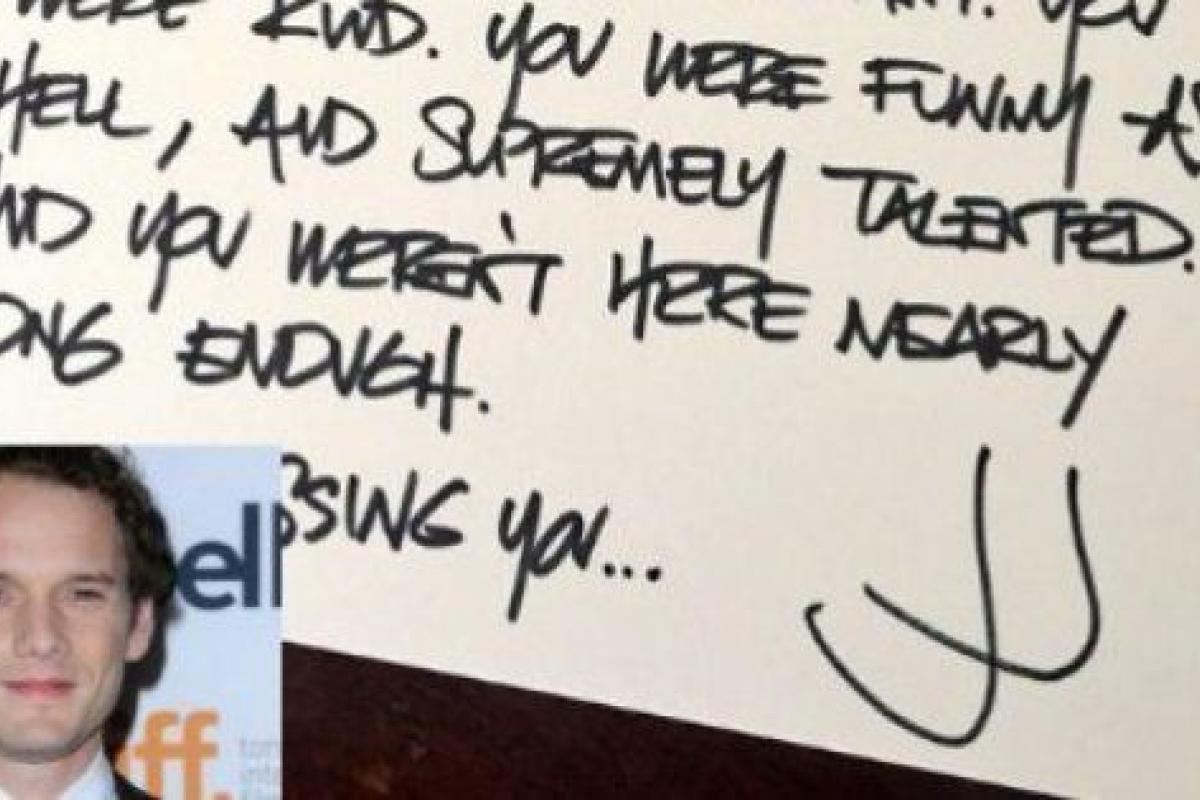 YOU
WERE KIND. YOU WERE FUNNY AS
HELL, AND SUPREMELY TALENTED.
ND YOU WEREN'T HERE NEARLY
ONG ENOUGH.
SSING YOU...
JJ
ell
iff.